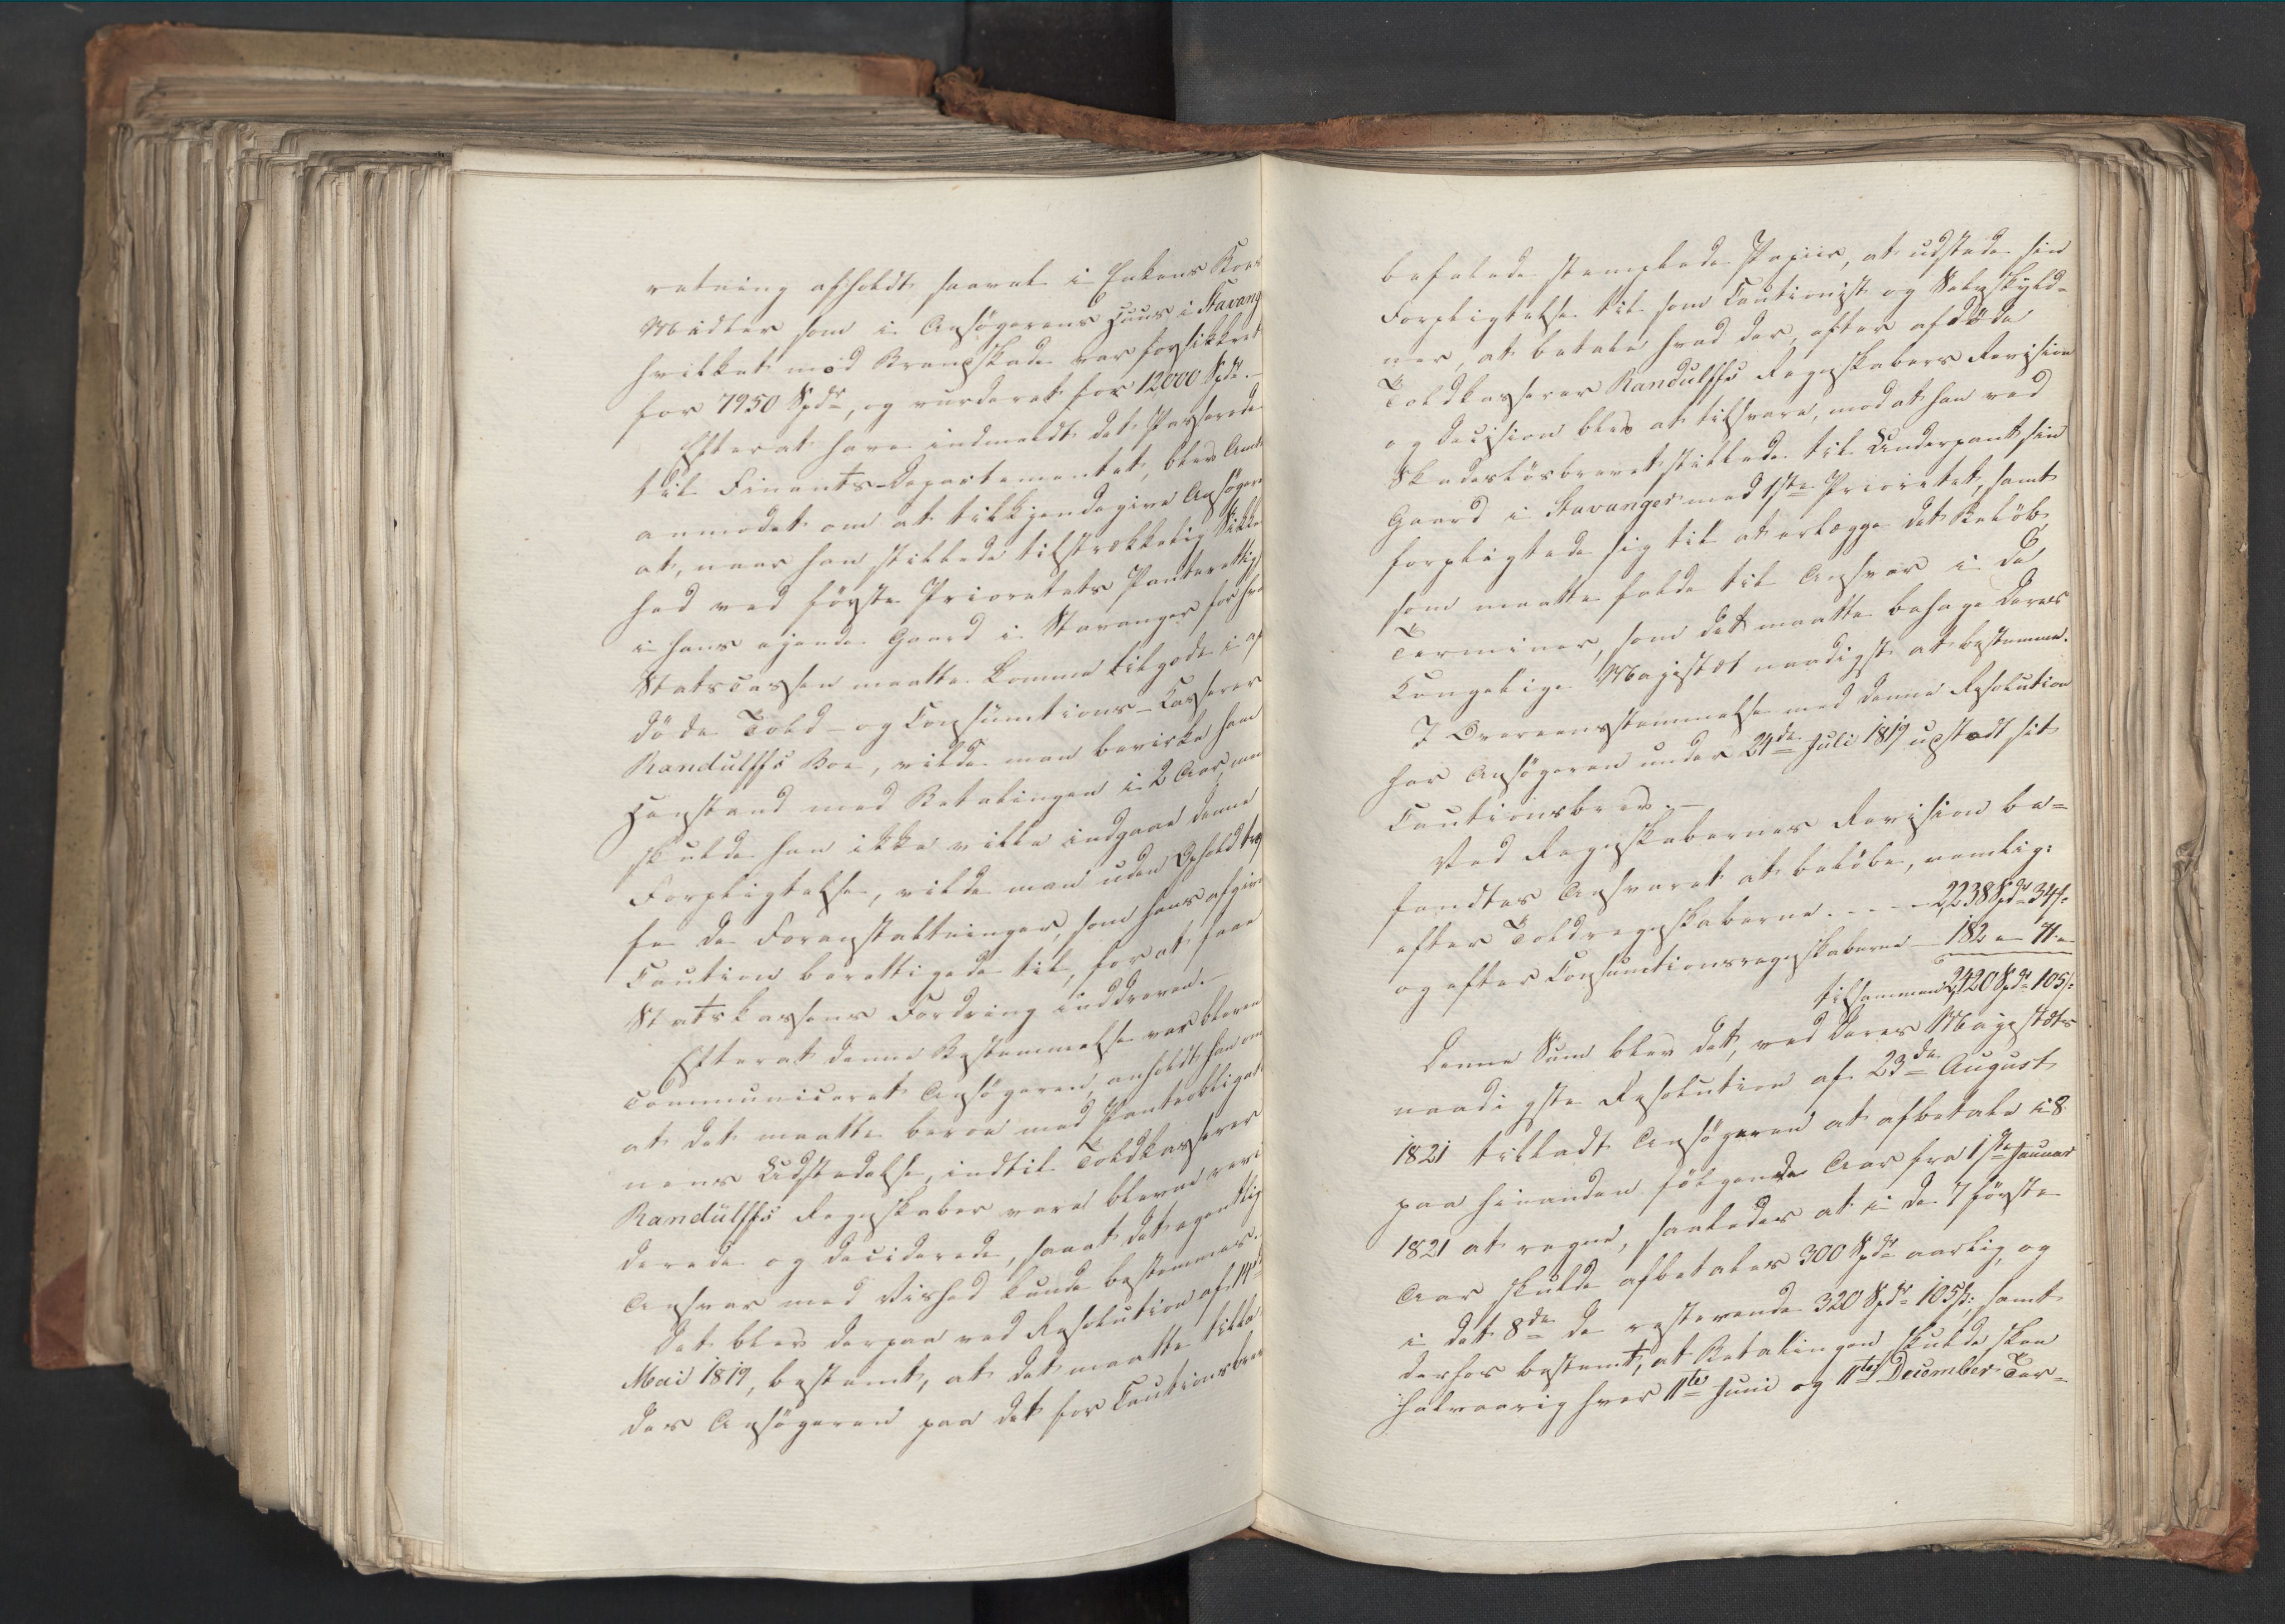 retning afholdt saavel i Enkens Boes
Midler som i Ansøgerens Huus i Stavang
hvilket mod Brandskade var forsikkret
for 7950 Spdr, og vurderet for 12,000 Spdr.–
Efter at have indmeldt det Passerede
til Finants-Departementet, blev Amt
anmodet om at tilkjendegive Ansøger
at, naar han stillede tilstrækkelig Sikker
hed ved første Prioritets Panterettig
i hans eiende Gaard i Stavanger for hva
Statscassen maatte komme tilgode i af
døde Told- og Consumtions-Kasserer
Randulffs Boe, vilde man bevirke ham
Henstand med Betalingen i 2 Aar, men
skulde han ikke ville indgaae denne
Forpligtelse, vilde man uden Ophold træf
fe de Foranstaltninger, som hans afgivne
Caution berettigede til, for at faae
Statskassens Fordring inddreven.–
Efterat denne Bestemmelse var bleven
communiceret Ansøgeren, anholdt han om
at det maatte beroe med Panteobligati
nens Udstedelse, indtil Toldkasserer
Randulffs Regnskaber vare blevne revi
derede og deciderede, samt det egentlig
Ansvar med Vished kunde bestemmes.
Det blev derpaa ved Resolution af 14de
Mai 1819, bestemt, at det maatte tilla
des Ansøgeren paa det for Cautionsbreve
befalede stemplede Papiir, at udstede sin
Forpligtelse til som Cautionist og Selvskyld-
ner, at betale hvad der, efter afdøde
Toldkasserer Randulffs Regnskabers Revision
og Decision blev at tilsvare, mod at han ved
Skadesløsbrevet stillede til Underpant sin
Gaard i Stavanger med 1ste Prioritet, samt
forpligtede sig til at erlægge det Beløb,
som maatte falde til Ansvar i de
Terminer, som det maatte behage Deres
Kongelige Majestæt naadigst at bestemme.
I Overeensstemmelse med denne Resolution
har Ansøgeren under 24de Juli 1819 udstedt sit
Cautionsbrev.–
Ved Regnskabernes Revision be-
fandtes Ansvaret at beløbe, nemlig:
efter Toldregnskaberne . - - - 2,238 Spdr 34 ß:
og efter Consumtionsregnskaberne – 182 – 71 –
tilsammen 2,420 Spdr 105 ß:
Denne Sum blev det, ved Deres Majestæts
naadigste Resolution af 23de August
1821 tilladt Ansøgeren at afbetale i 8
paa hinanden følgende Aar fra 1ste Januar
1821 at regne, saaledes at i de 7 første
Aar skulde afbetales 300 Spdr aarlig, og
i det 8de de resterende 320 Spdr 105 ß:, samt
derhos bestemt, at Betalingen skulde skee
halvaarig hver 11te Juni og 11te December Ter-